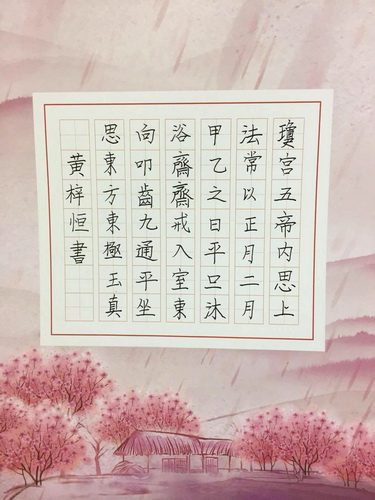 瓊宫五帝内思上
法常以正月二月
甲乙之日平旦沐
浴齋齋戒入室東
向叩齒九通平坐
思東方東極玉真
黄梓恒書